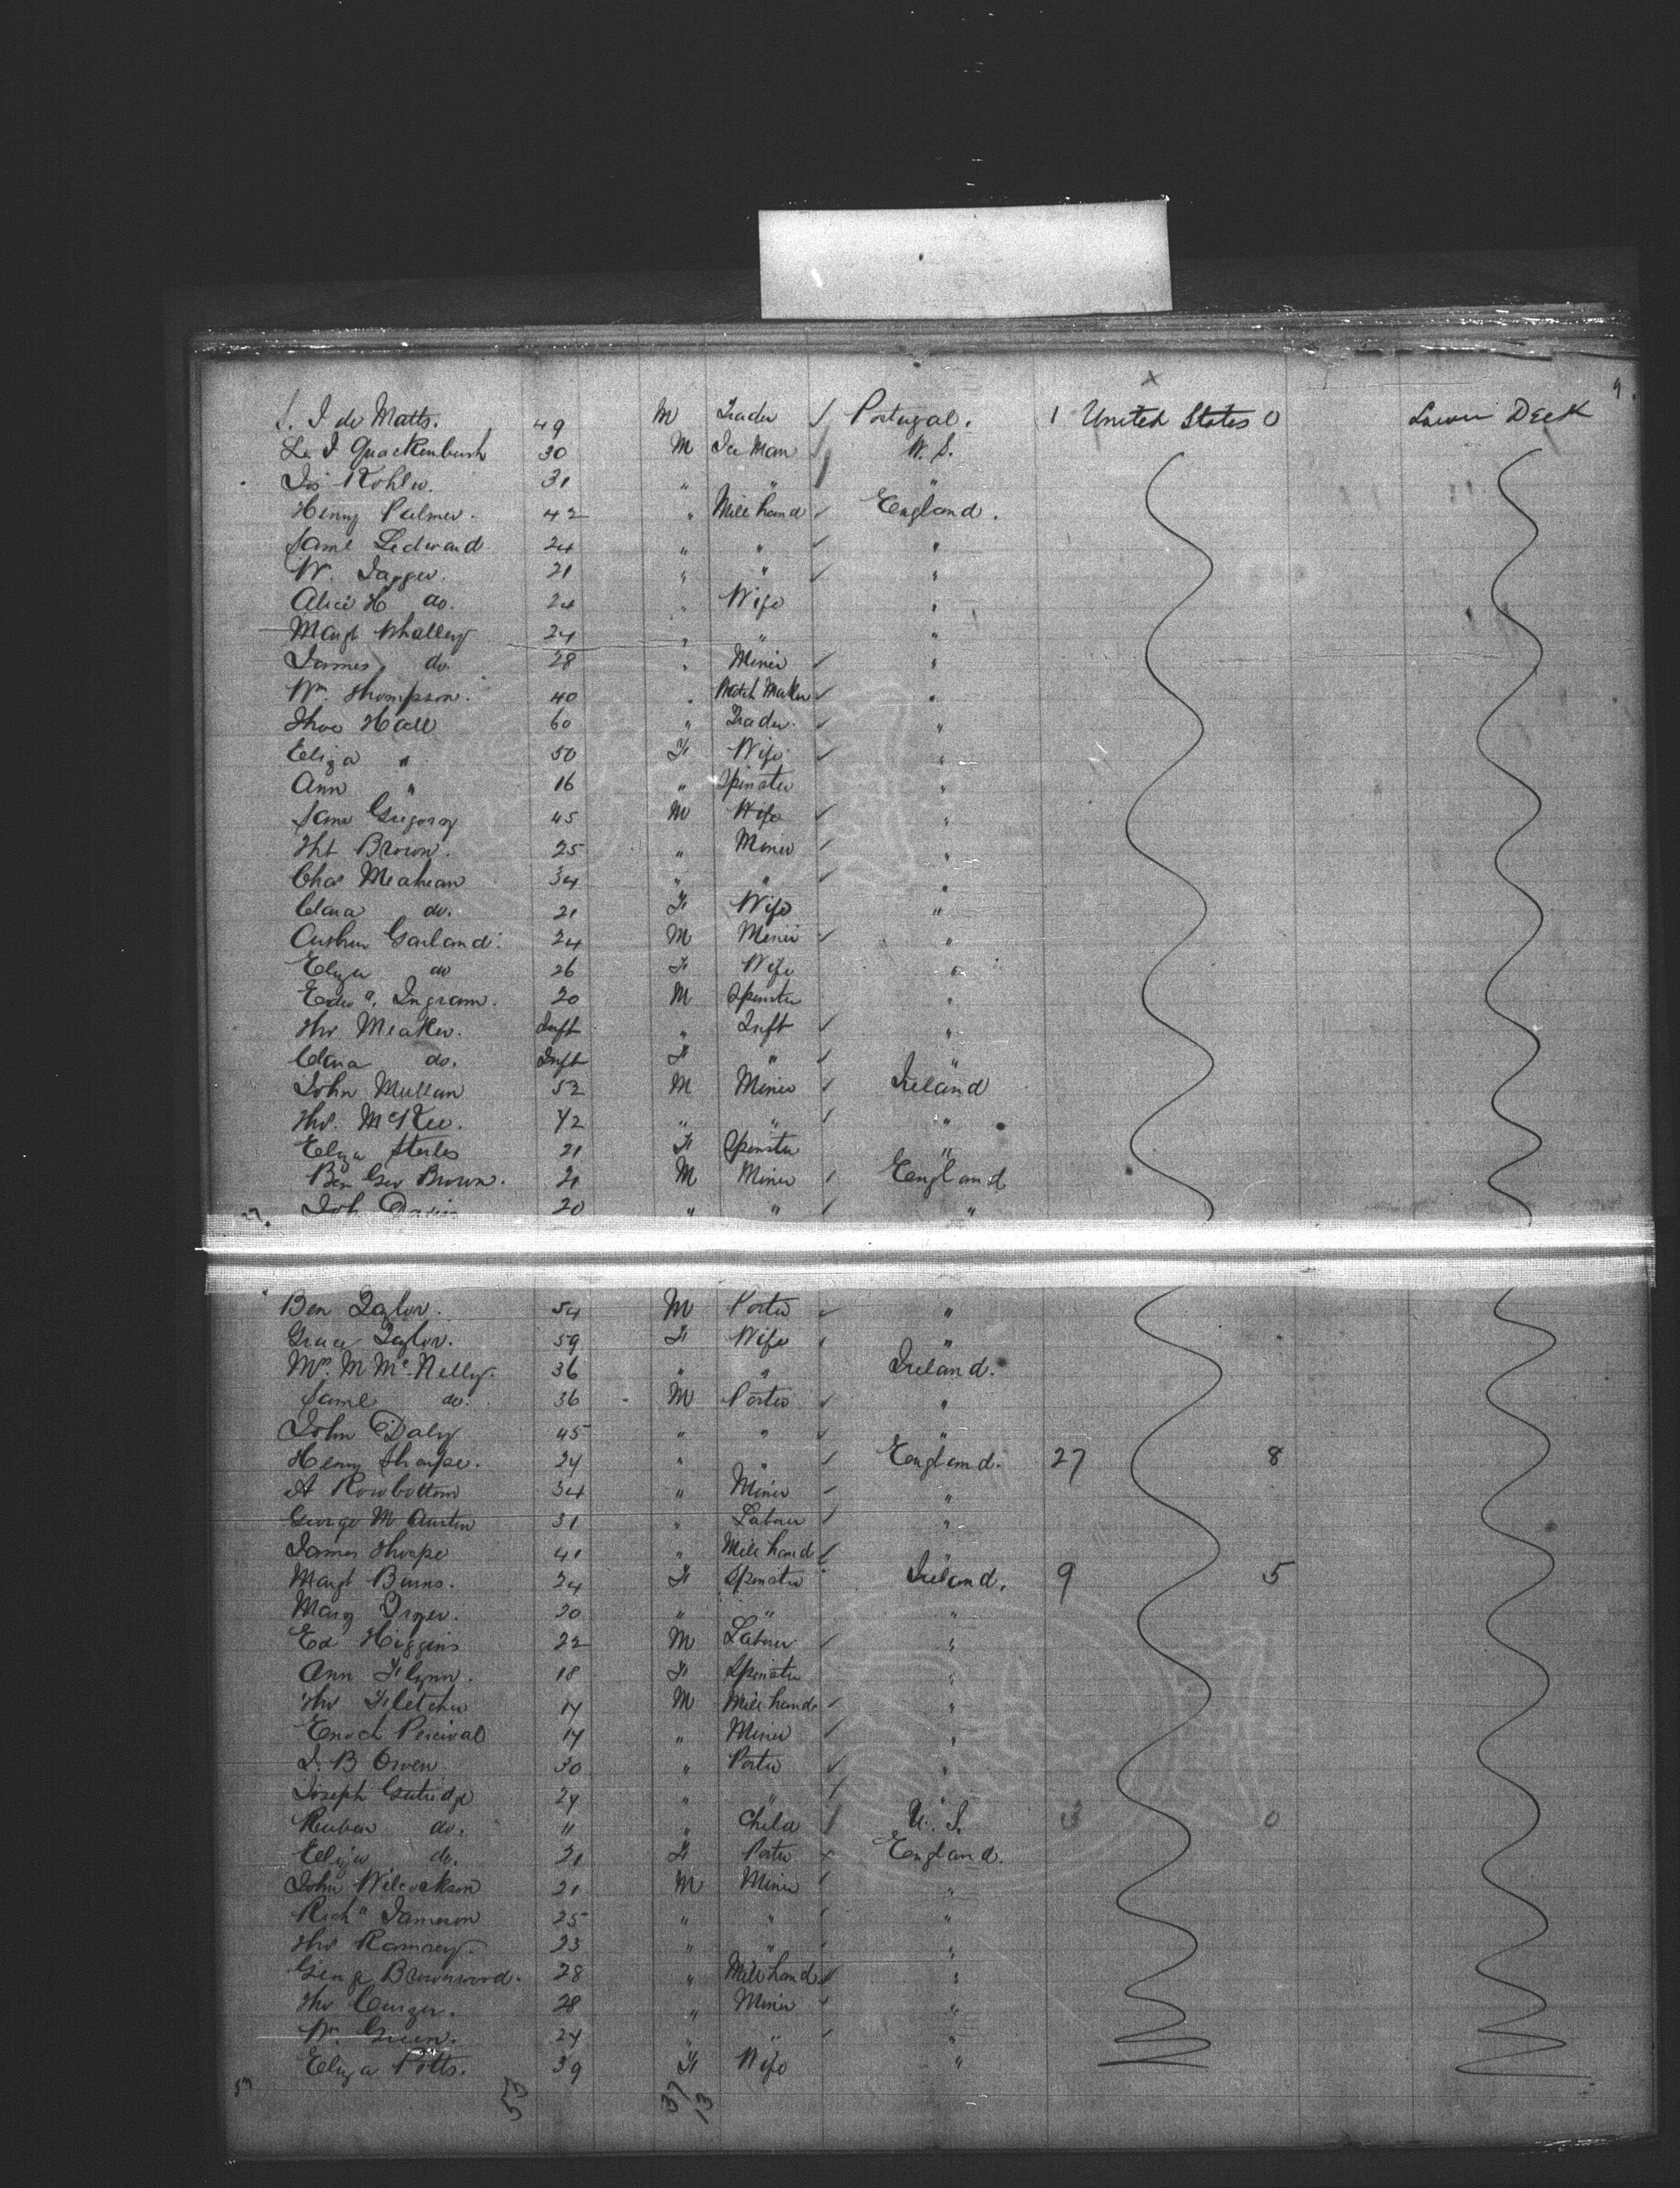 9.
x
S. I de Matts. 49 M Trader Portugal. 1 United States 0 Lower Deck
Le I Quackenbush 30 M Ice Man U. S.
Jos Kohler. 31 " " "
Henry Palmer. 42 " Mill hand England.
Saml Ledward 24 " " "
W. Jagger. 21 " " "
Alice H do. 24 " Wife "
Margt Whalley 24 " " "
James do. 28 " Miner "
Wm Thompson. 40 " Watch Maker "
Thos Hall 60 " Trader "
Eliza " 50 F Wife "
Ann " 16 " Spinster "
Jane Gregory 45 M Wife "
Tht Brown. 25 " Miner "
Chas Meahean 34 " " "
Clara do. 21 F Wife "
Arthur Garland. 24 M Miner "
Eliza do 26 F Wife "
Edwd. Ingram. 20 M Spinster "
Thos Meaker. Inft " Inft "
Clara do. Inft F " "
John Mullan 52 M Miner Ireland
Thos. McKee. 42 " " "
Eliza Steiles 21 F Spinster "
Ben Geo Brown. 21 M Miner England
27. Joh Davis 20 " " "
Ben Taylor. 54 M Porter "
Grace Taylor. 59 F Wife "
Mrs. M McNelly. 36 " " Ireland.
Saml do. 36 M Porter "
John Daly 45 " " "
Henry Sharpe. 24 " " England. 27 8
A Rowbottom 34 " Miner "
George M Austin 31 " Labour "
James Thorpe 41 " Mill hand "
Margt Burns. 24 F Spinster Ireland. 9 5
Mary Dryer. 20 " " "
Ed Higgins 22 M Labour "
Ann Flynn. 18 F Spinster "
Thos Fletcher 14 M Mill hand "
Enoch Percival 14 " Miner "
J. B Owen. 30 " Porter "
Joseph Gutridge 24 " "
Reuben do. 11 " Child U. S. 3 0
Eliza do. 21 F Porter England.
John Wilcockson 21 M Miner "
Richd Jameson 25 " " "
Thos Ramsey. 23 " " "
George Brownwood. 28 " Mill hand "
Thos Curzer. 28 " Miner "
Wm Green. 24 " " "
Eliza Potts. 39 F Wife "
53 53 37/13